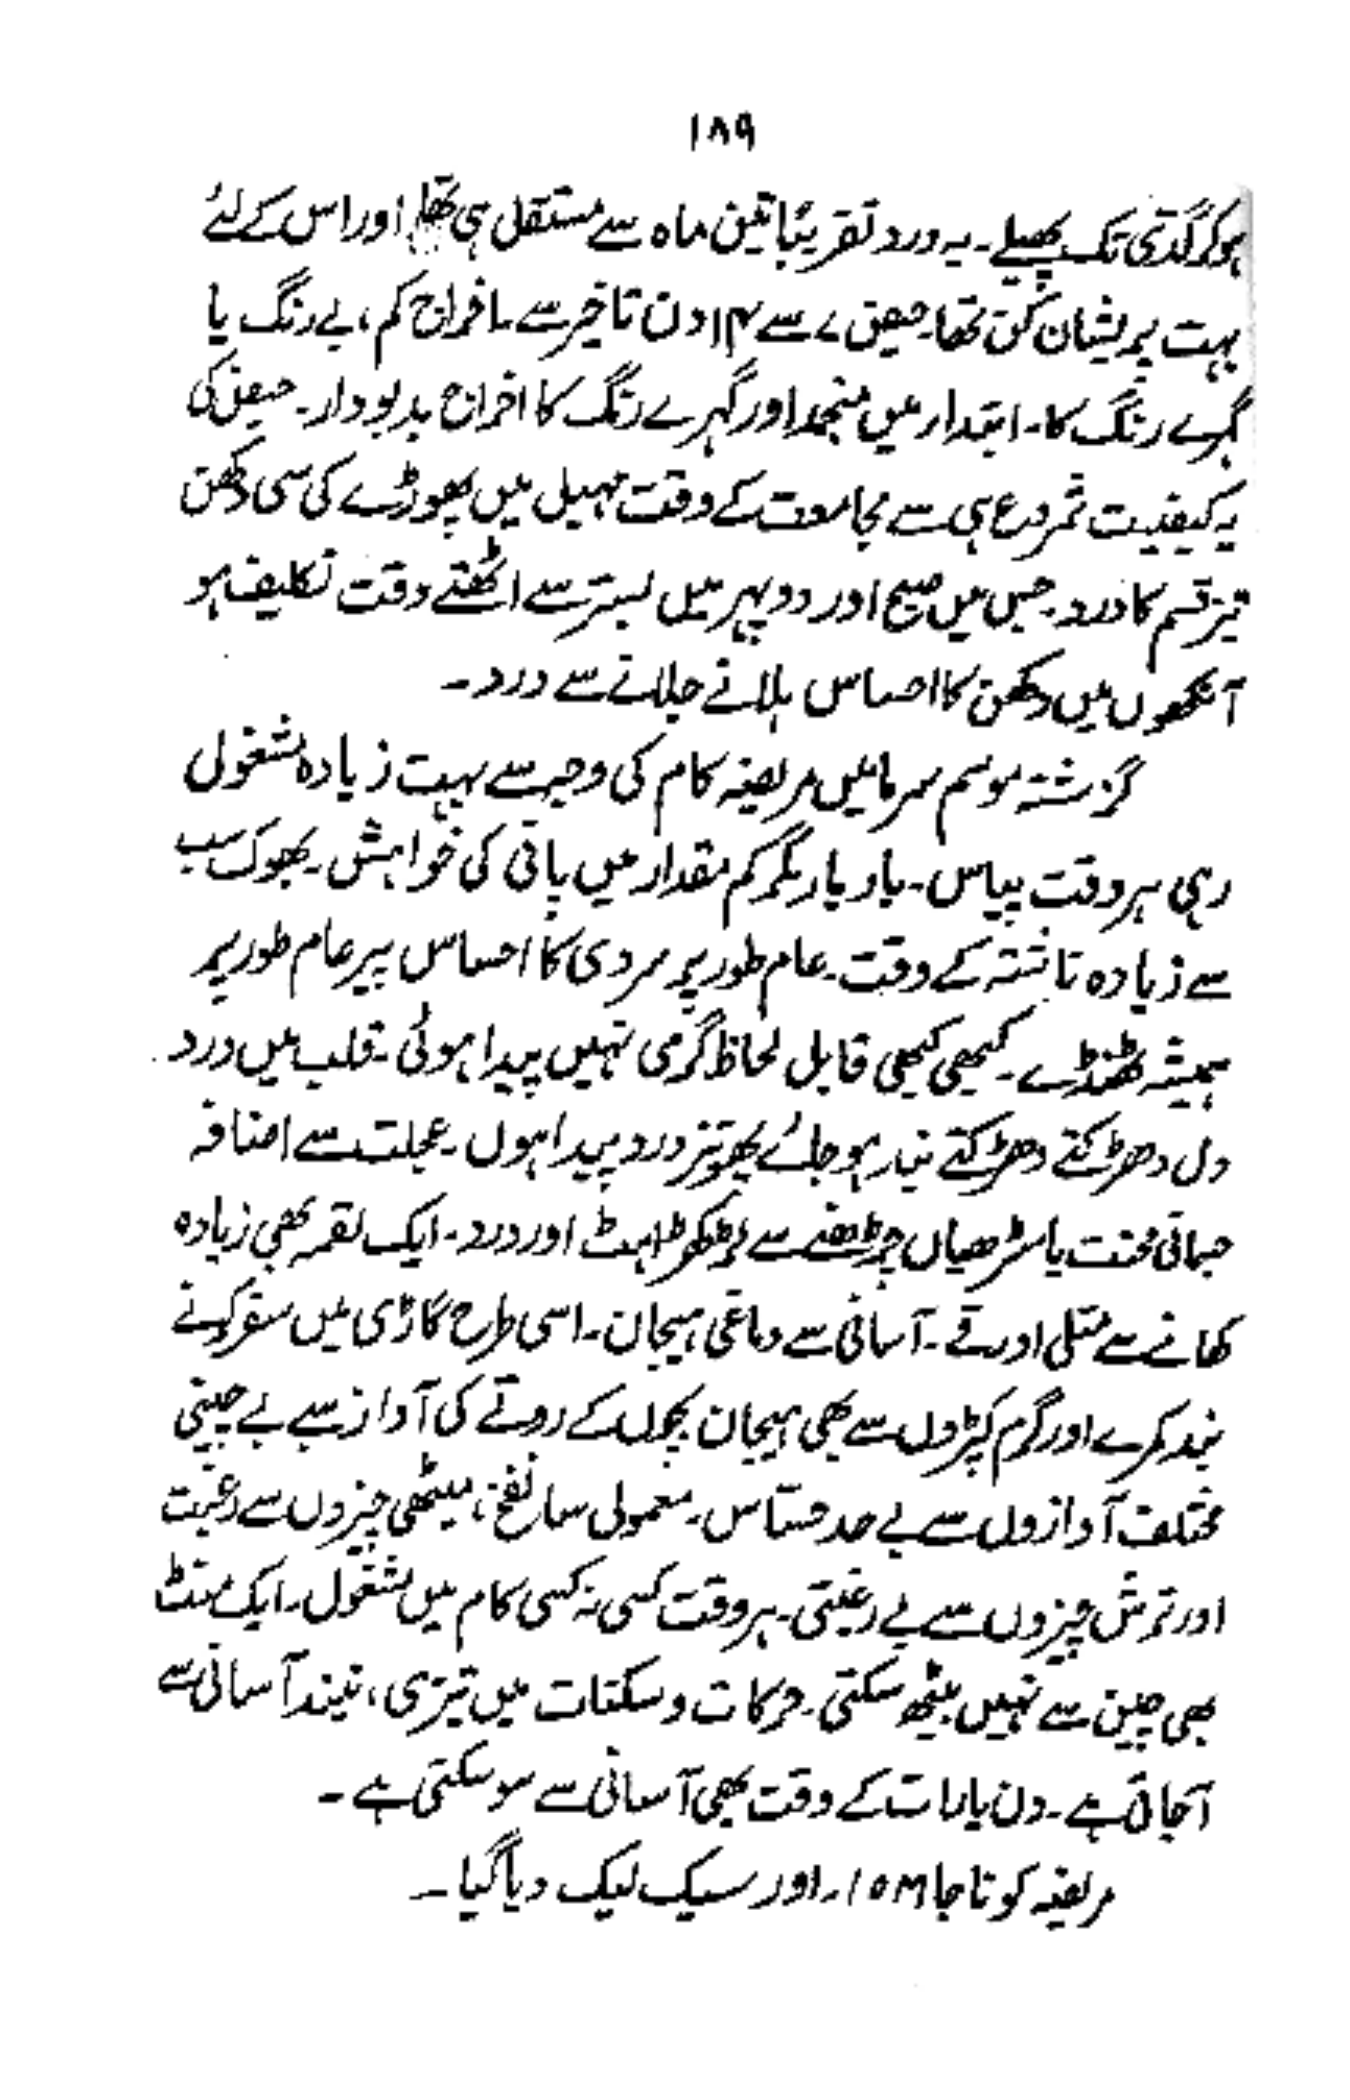 ۱۸۹
ہوکر گدی تک پھیلے۔ یہ درد تقریباً تین ماہ سے مستقل ہی تھا اور اس کے لئے
بہت پریشان کن تھا۔ حیض ۷ سے ۱۴ دن تاخیر سے۔ اخراج کم، بے رنگ یا
گہرے رنگ کا۔ ابتدار میں منجمد اور گہرے رنگ کا اخراج بدبودار۔ حیض کی
یہ کیفیت شروع ہی سے مجامعت کے وقت مہبل میں پھوڑے کی سی دکھن
تیز قسم کا درد۔ جس میں صبح اور دوپہر میں بستر سے اٹھتے وقت تکلیف ہو
آنکھوں میں دکھن کا احساس ہلانے جلانے سے درد۔
گزشتہ موسم سرما میں مریضہ کام کی وجہ سے بہت زیادہ مشغول
رہی ہر وقت پیاس۔ بار بار مگر کم مقدار میں پانی کی خواہش۔ بھوک سب
سے زیادہ ناشتہ کے وقت۔ عام طور پر سردی کا احساس پیر عام طور پر
ہمیشہ ٹھنڈے۔ کبھی کبھی قابل لحاظ گرمی نہیں پیدا ہوئی۔ قلب میں درد
دل دھڑکتے دھڑکتے تیار ہو جائے پھر تیز درد پیدا ہوں۔ عجلت سے اضافہ
جسمانی محنت یا سڑھیاں چڑھنے سے لڑکھڑاہٹ اور درد۔ ایک لقمہ بھی زیادہ
کھانے سے متلی اور قے۔ آسانی سے دماغی ہیجان۔ اسی طرح گاڑی میں سفر کرنے
بند کمرے اور گرم کپڑوں سے بھی ہیجان بچوں کے رونے کی آواز سے بے چینی
مختلف آوازوں سے بے حد حسّاس۔ معمولی سا نفخ، میٹھی چیزوں سے رغبت
اور ترش چیزوں سے بے رغبتی۔ ہر وقت کسی نہ کسی کام میں مشغول۔ ایک منٹ
بھی چین سے نہیں بیٹھ سکتی۔ حرکات و سکنات میں تیزی، نیند آسانی سے
آجاتی ہے۔ دن یا رات کے وقت بھی آسانی سے سو سکتی ہے۔
مریضہ کو ناجا ۱۰M۔ اور سیک لیک دیا گیا۔